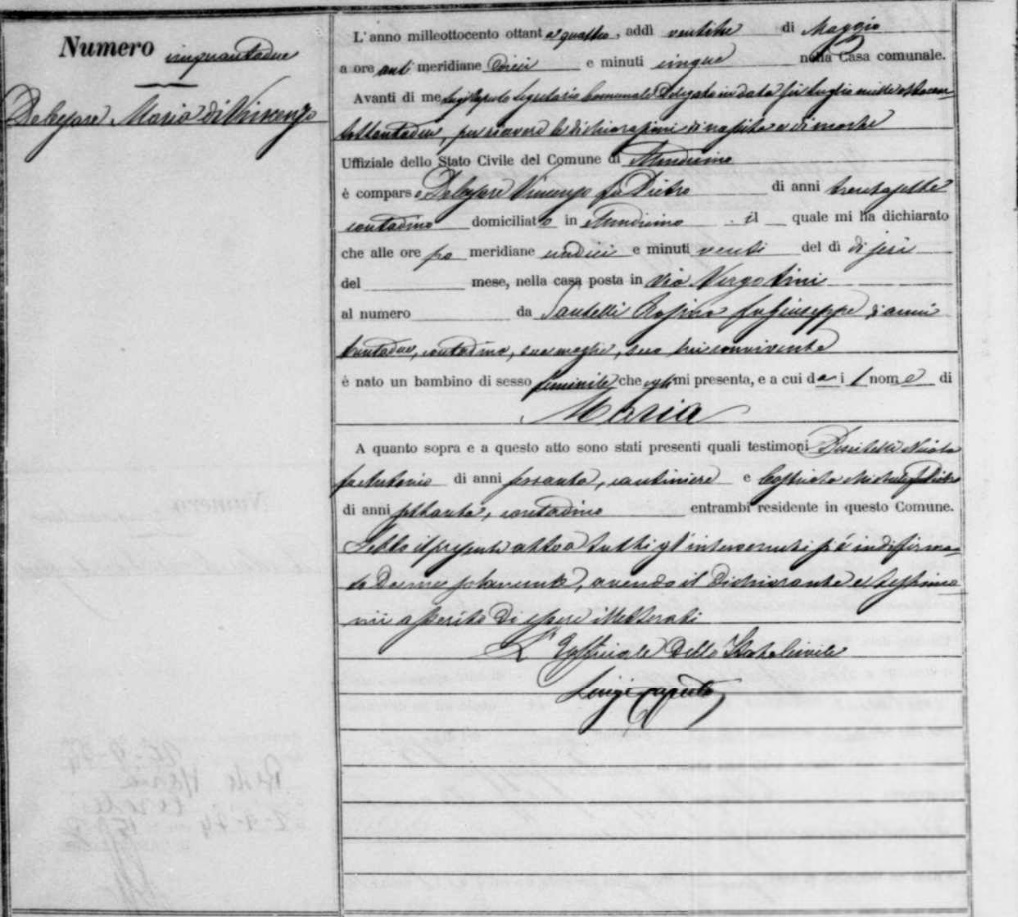 Numero cinquantadue
Decesare Maria di Vincenzo
L'anno milleottocento ottanta quattro, addì ventitre di Maggio
a ore anti meridiane dieci e minuti cinque nella Casa comunale.
Avanti di me Luigi Caputo Segretario Comunale Delegato in data sei Luglio mille ottocen-
tottantadue, per ricevere le dichiarazioni di nascita e di morte
Uffiziale dello Stato Civile del Comune di Mendicino
è comparso Decesare Vincenzo fu Pietro di anni trentasette
contadino domiciliato in Mendicino il quale mi ha dichiarato
che alle ore po meridiane undici e minuti venti del dì di jeri
del mese, nella casa posta in via
al numero da Santelli Rosina fu Giuseppe di anni
trentadue, contadina, sua moglie, seco lui convivente
è nato un bambino di sesso feminile che egli mi presenta, e a cui da i l nome di
Maria
A quanto sopra e a questo atto sono stati presenti quali testimoni Nicola
fu Antonio di anni sessanta, cantiniere e fu Pietro
di anni settanta, contadino entrambi residente in questo Comune.
Letto il presente atto a tutti gl'intervenuti si è indi firma-
to da me solamente, avendo il dichiarante e testimo
nii asserito di essere illetterati
L'Uffiziale dello Stato Civile
Luigi Caputo
Numero